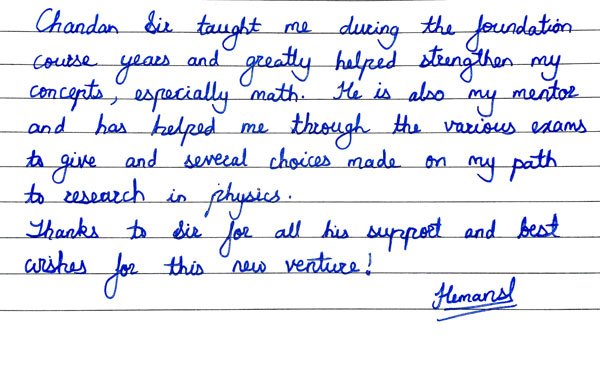 Chandan Sir taught me during the foundation
course years and greatly helped strengthen my
concepts, especially math. He is also my mentor
and has helped me through the various exams
to give and several choices made on my path
to research in physics.
Thanks to Sir for all his support and best
wishes for this new venture!
Hemansh